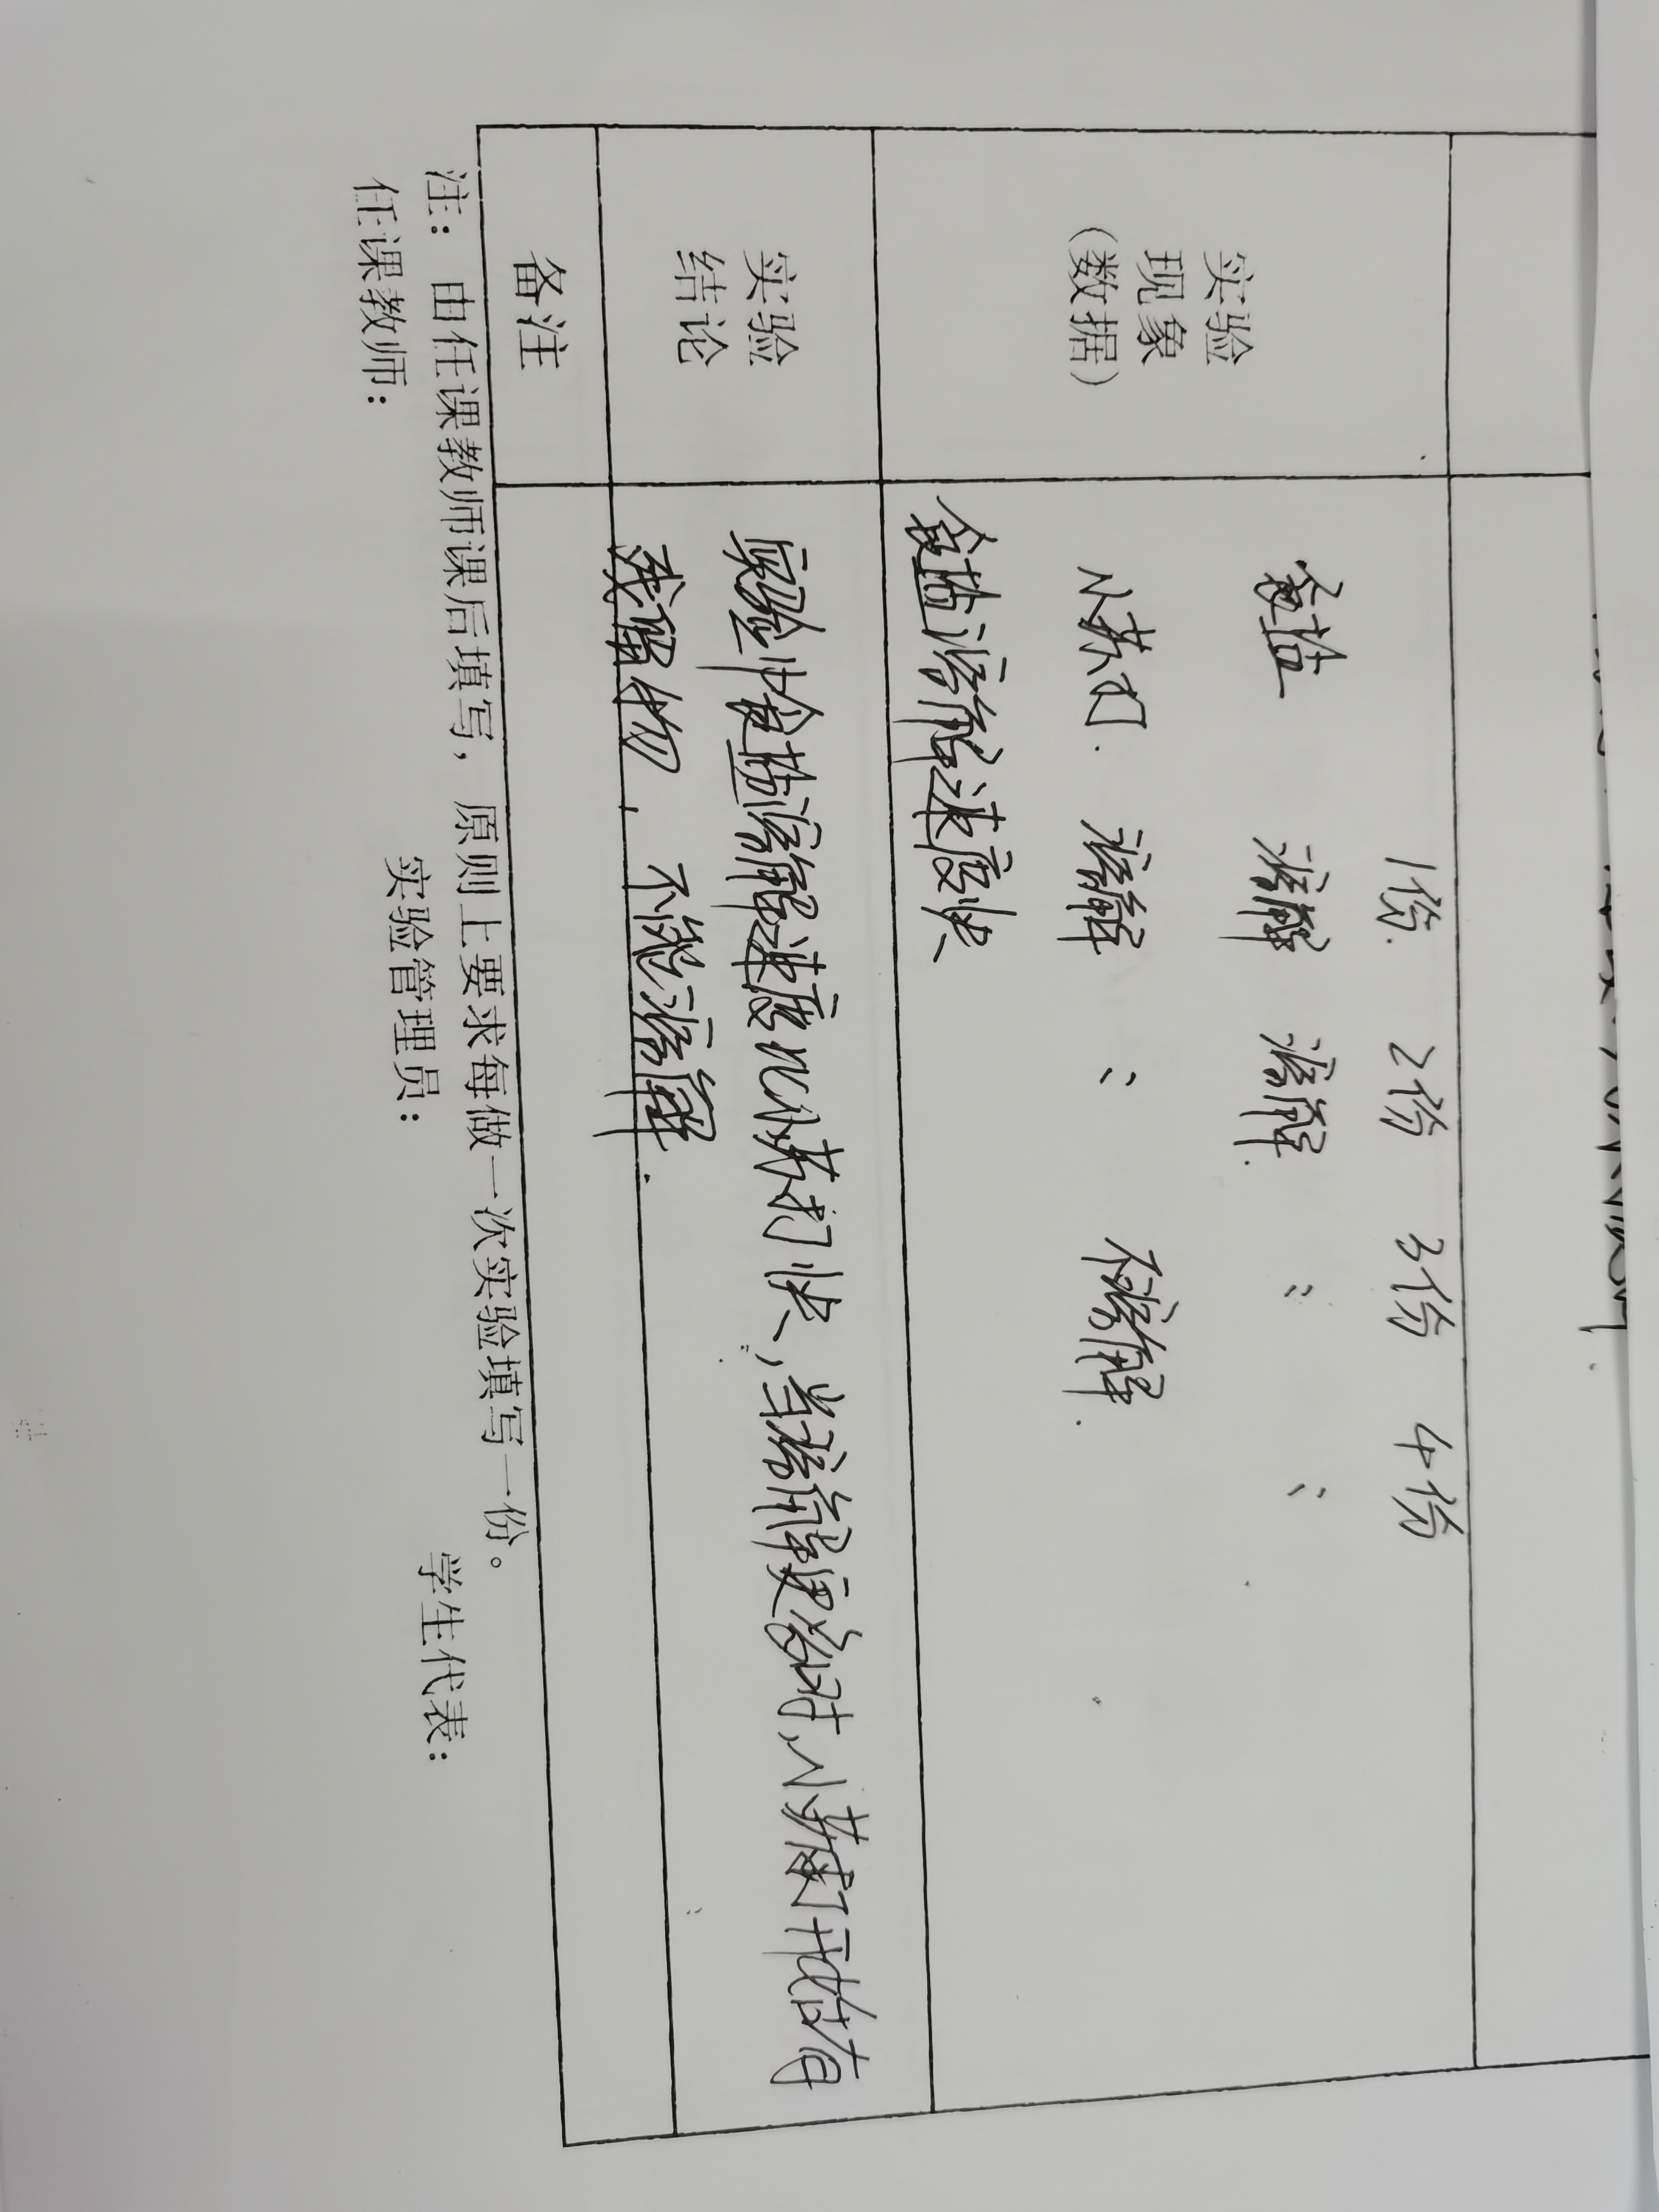 1份 2份 3份 4份
食盐 溶解 溶解 〃 〃
小苏打 溶解 〃 不溶解
食盐溶解速度快
实验
现象
(数据)
实验中食盐溶解速度比小苏打快,当溶解变浓时,小苏打开始有
残留物,不能溶解.
实验
结论
备注
注:由任课教师课后填写,原则上要求每做一次实验填写一份。
任课教师: 实验管理员: 学生代表: